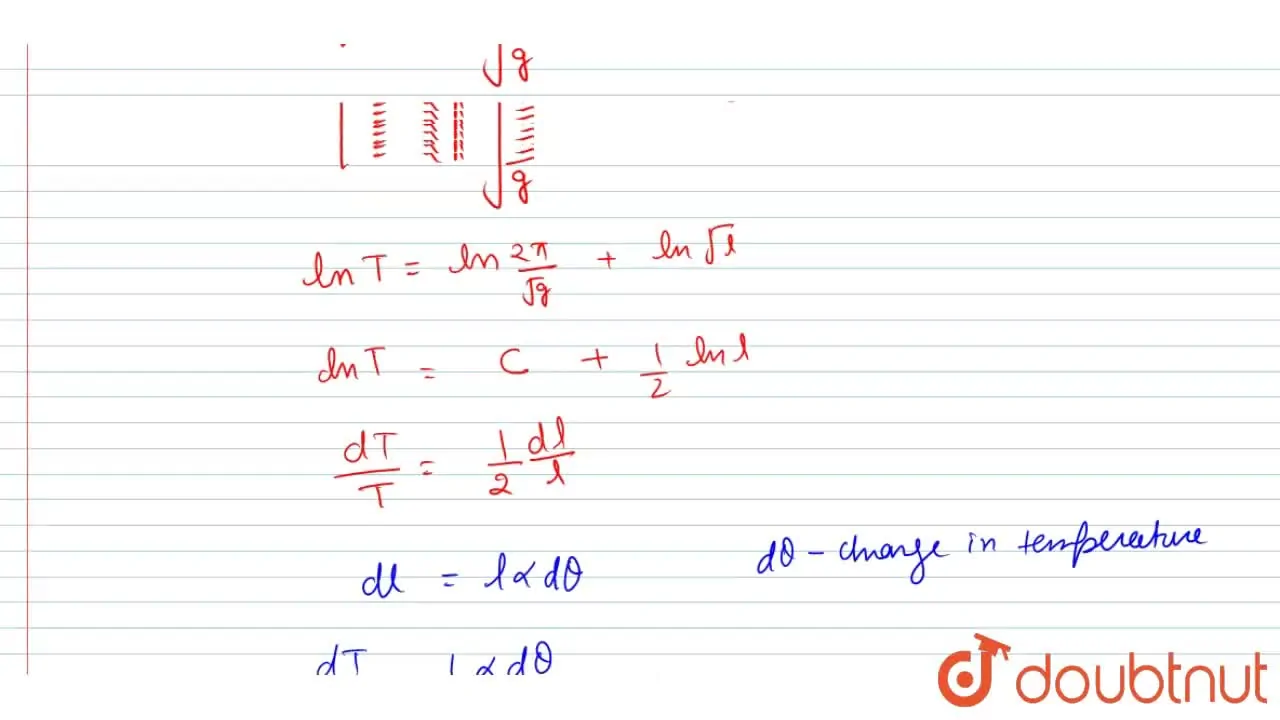 √g
√g
ln T = ln 2π/√g + ln √l
ln T = C + 1/2 ln l
dT/T = 1/2 dl/l
dl = l α dθ
dθ - change in temperature
dT α dθ
doubtnut